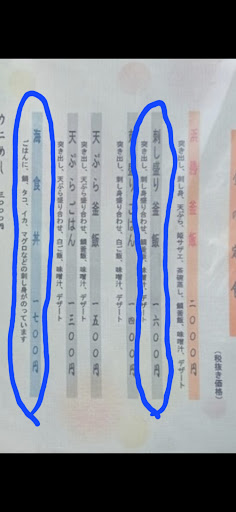 (税抜き価格)
釜飯 二〇〇〇円
突き出し、刺し身、天ぷら、茶碗蒸し、鯛釜飯、味噌汁、デザート
刺し盛り釜飯 一六〇〇円
突き出し、刺し身盛り合わせ、鯛釜飯、味噌汁、デザート
ごはん
突き出し、刺し身盛り合わせ、白ご飯、味噌汁、デザート
天ぷら釜飯 一五〇〇円
突き出し、天ぷら盛り合わせ、鯛釜飯、味噌汁、デザート
天ぷらごはん 一三〇〇円
突き出し、天ぷら盛り合わせ、白ご飯、味噌汁、デザート
海食丼 一七〇〇円
ごはんに、鯛、タコ、イカ、マグロなどの刺し身がのっています